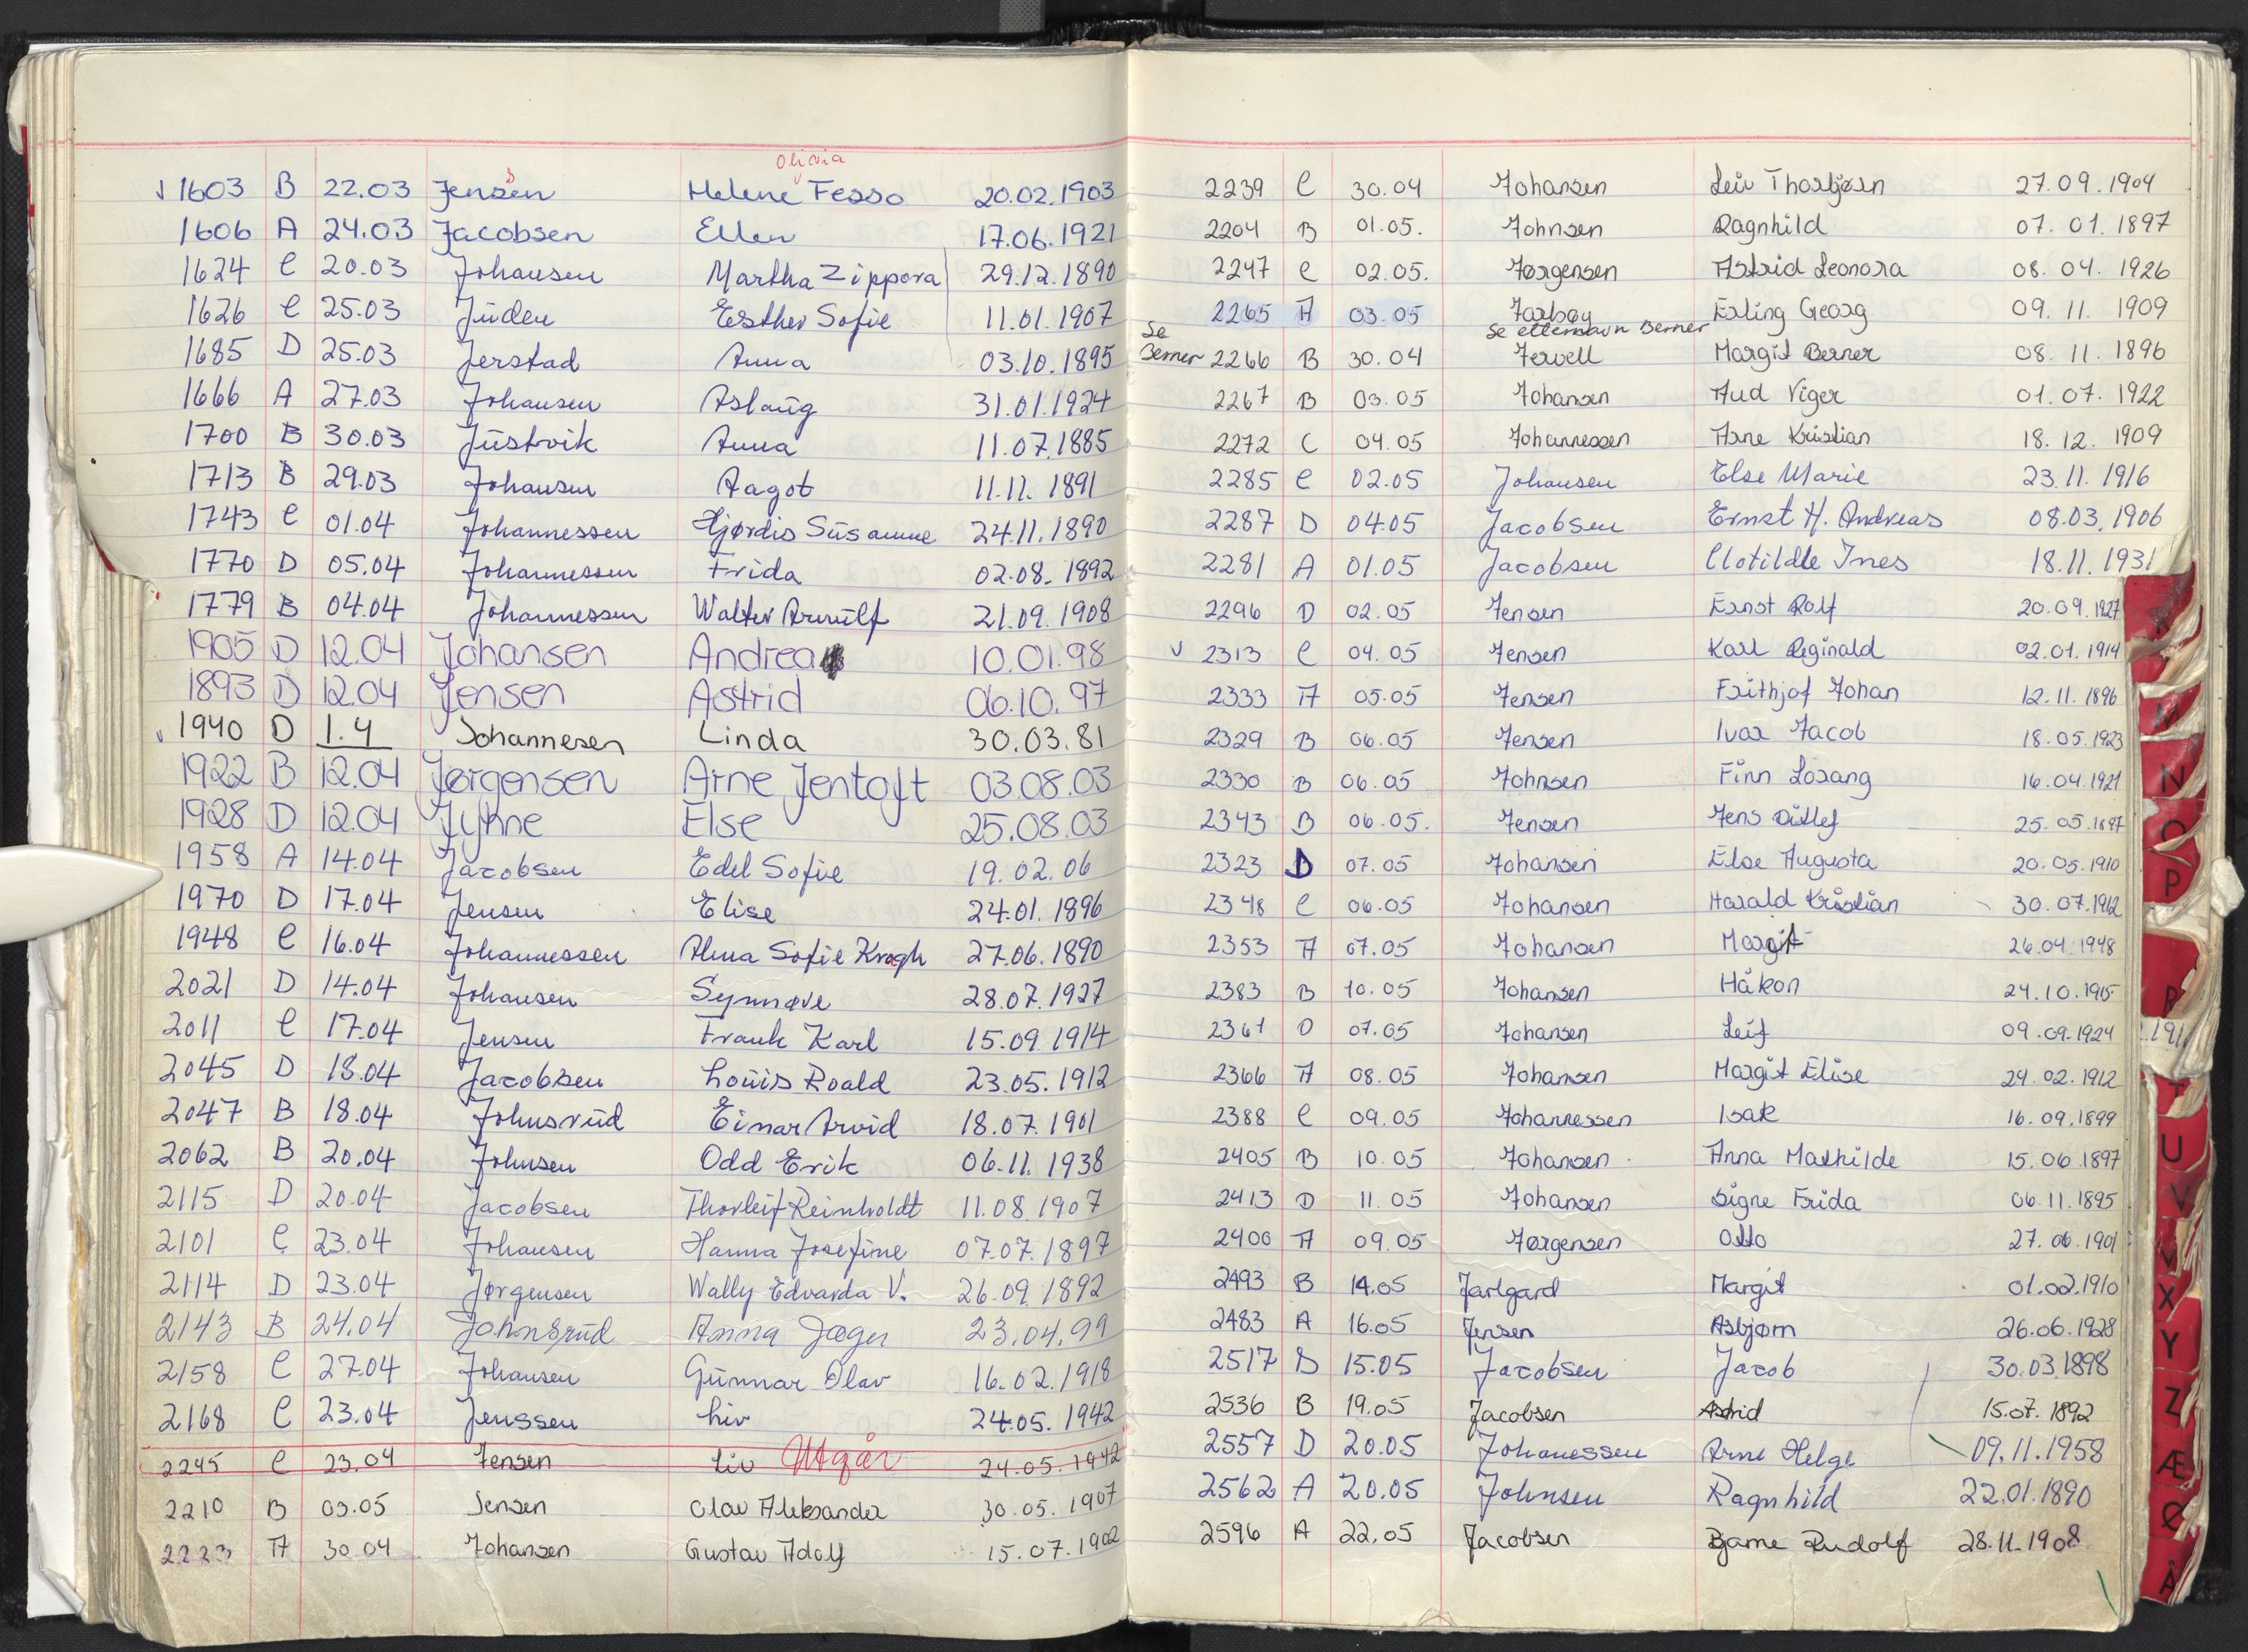 Olivia
√ 1603 B 22.03 Jensen Helene Fesso 20.02.1903
1606 A 24.03 Jacobsen Ellen 17.06.1921
1624 C 20.03 Johansen Martha Zippora 29.12.1890
1626 C 25.03 Juden Esther Sofie 11.01.1907
1685 D 25.03 Jerstad Anna 03.10.1895
1666 A 27.03 Johansen Aslaug 31.01.1924
1700 B 30.03 Justvik Anna 11.07.1885
1713 B 29.03 Johansen Aagot 11.11.1891
1743 C 01.04 Johannessen Hjørdis Susanne 24.11.1890
1770 D 05.04 Johannessen Frida 02.08.1892
1779 B 04.04 Johannessen Walter Arnulf 21.09.1908
1905 D 12.04 Johansen Andrea 10.01.98
1893 D 12.04 Jensen Astrid 06.10.97
√ 1940 D 1.4 Johannesen Linda 30.03.81
1922 B 12.04 Jørgensen Arne Jentoft 03.08.03
1928 D 12.04 Jyhne Else 25.08.03
1958 A 14.04 Jacobsen Edel Sofie 19.02.06
1970 D 17.04 Jensen Elise 24.01.1896
1948 C 16.04 Johannessen Alma Sofie Krogh 27.06.1890
2021 D 14.04 Johansen Synnøve 28.07.1927
2011 C 17.04 Jensen Frank Karl 15.09.1914
2045 D 18.04 Jacobsen Louis Roald 23.05.1912
2047 B 18.04 Johnsrud Einar Arvid 18.07.1901
2062 B 20.04 Johnsen Odd Erik 06.11.1938
2115 D 20.04 Jacobsen Thorleif Reinholdt 11.08.1907
2101 C 23.04 Johansen Hanna Josefine 07.07.1897
2114 D 23.04 Jørgensen Wally Edvarda V. 26.09.1892
2143 B 24.04 Johnsrud Anna Jæger 23.04.99
2158 C 27.04 Johansen Gunnar Olav 16.02.1918
2168 C 23.04 Jenssen Liv 24.05.1942
2245 C 23.04 Jensen Liv Utgår 24.05.1942
2210 B 03.05 Jensen Olav Aleksander 30.05.1907
2223 A 30.04 Johansen Gustav Adolf 15.07.1902
2239 C 30.04 Johansen Leiv Thorbjørn 27.09.1904
2204 B 01.05. Johnsen Ragnhild 07.01.1897
2247 C 02.05. Jørgensen Astrid Leonora 08.04.1926
2265 A 03.05 Jarbøy Erling Georg 09.11.1909
Se etternavn Berner
Se Berner 2266 B 30.04 Jervell Margit Berner 08.11.1896
2267 B 03.05 Johansen Aud Viger 01.07.1922
2272 C 04.05 Johannessen Arne Kristian 18.12.1909
2285 C 02.05 Johansen Else Marie 23.11.1916
2287 D 04.05 Jacobsen Ernst H. Andreas 08.03.1906
2281 A 01.05 Jacobsen Clotildle Ines 18.11.1931
2296 D 02.05 Jensen Ernst Rolf 20.09.1927
√ 2313 C 04.05 Jensen Karl Reginald 02.01.1914
2333 A 05.05 Jensen Frithjof Johan 12.11.1896
2329 B 06.05 Jensen Ivar Jacob 18.05.1923
2330 B 06.05 Johnsen Finn Lorang 16.04.1921
2343 B 06.05. Jensen Jens Ditlef 25.05.1897
2323 D 07.05 Johansen Else Augusta 20.05.1910
2348 C 06.05 Johansen Harald Kristian 30.07.1912
2353 A 07.05 Johansen Margit 26.04.1948
2383 B 10.05 Johansen Håkon 24.10.1915
2361 D 07.05 Johansen Leif 09.09.1924
2366 A 08.05 Johansen Margit Elise 24.02.1912
2388 C 09.05 Johannessen Isak 16.09.1899
2405 B 10.05 Johansen Anna Mathilde 15.06.1897
2413 D 11.05 Johansen Signe Frida 06.11.1895
2400 A 09.05 Jørgensen Otto 27.06.1901
2493 B 14.05 Jarlgard Margit 01.02.1910
2483 A 16.05 Jensen Asbjørn 26.06.1928
2517 D 15.05 Jacobsen Jacob 30.03.1898
2536 B 19.05 Jacobsen Astrid 15.07.1892
2557 D 20.05 Johanessen Arne Helge 09.11.1958
2562 A 20.05 Johnsen Ragnhild 22.01.1890
2596 A 22.05 Jacobsen Bjarne Rudolf 28.11.1908
M
N
O
P
R
T
U
V
X
Y
Z
Æ
Ø
Å